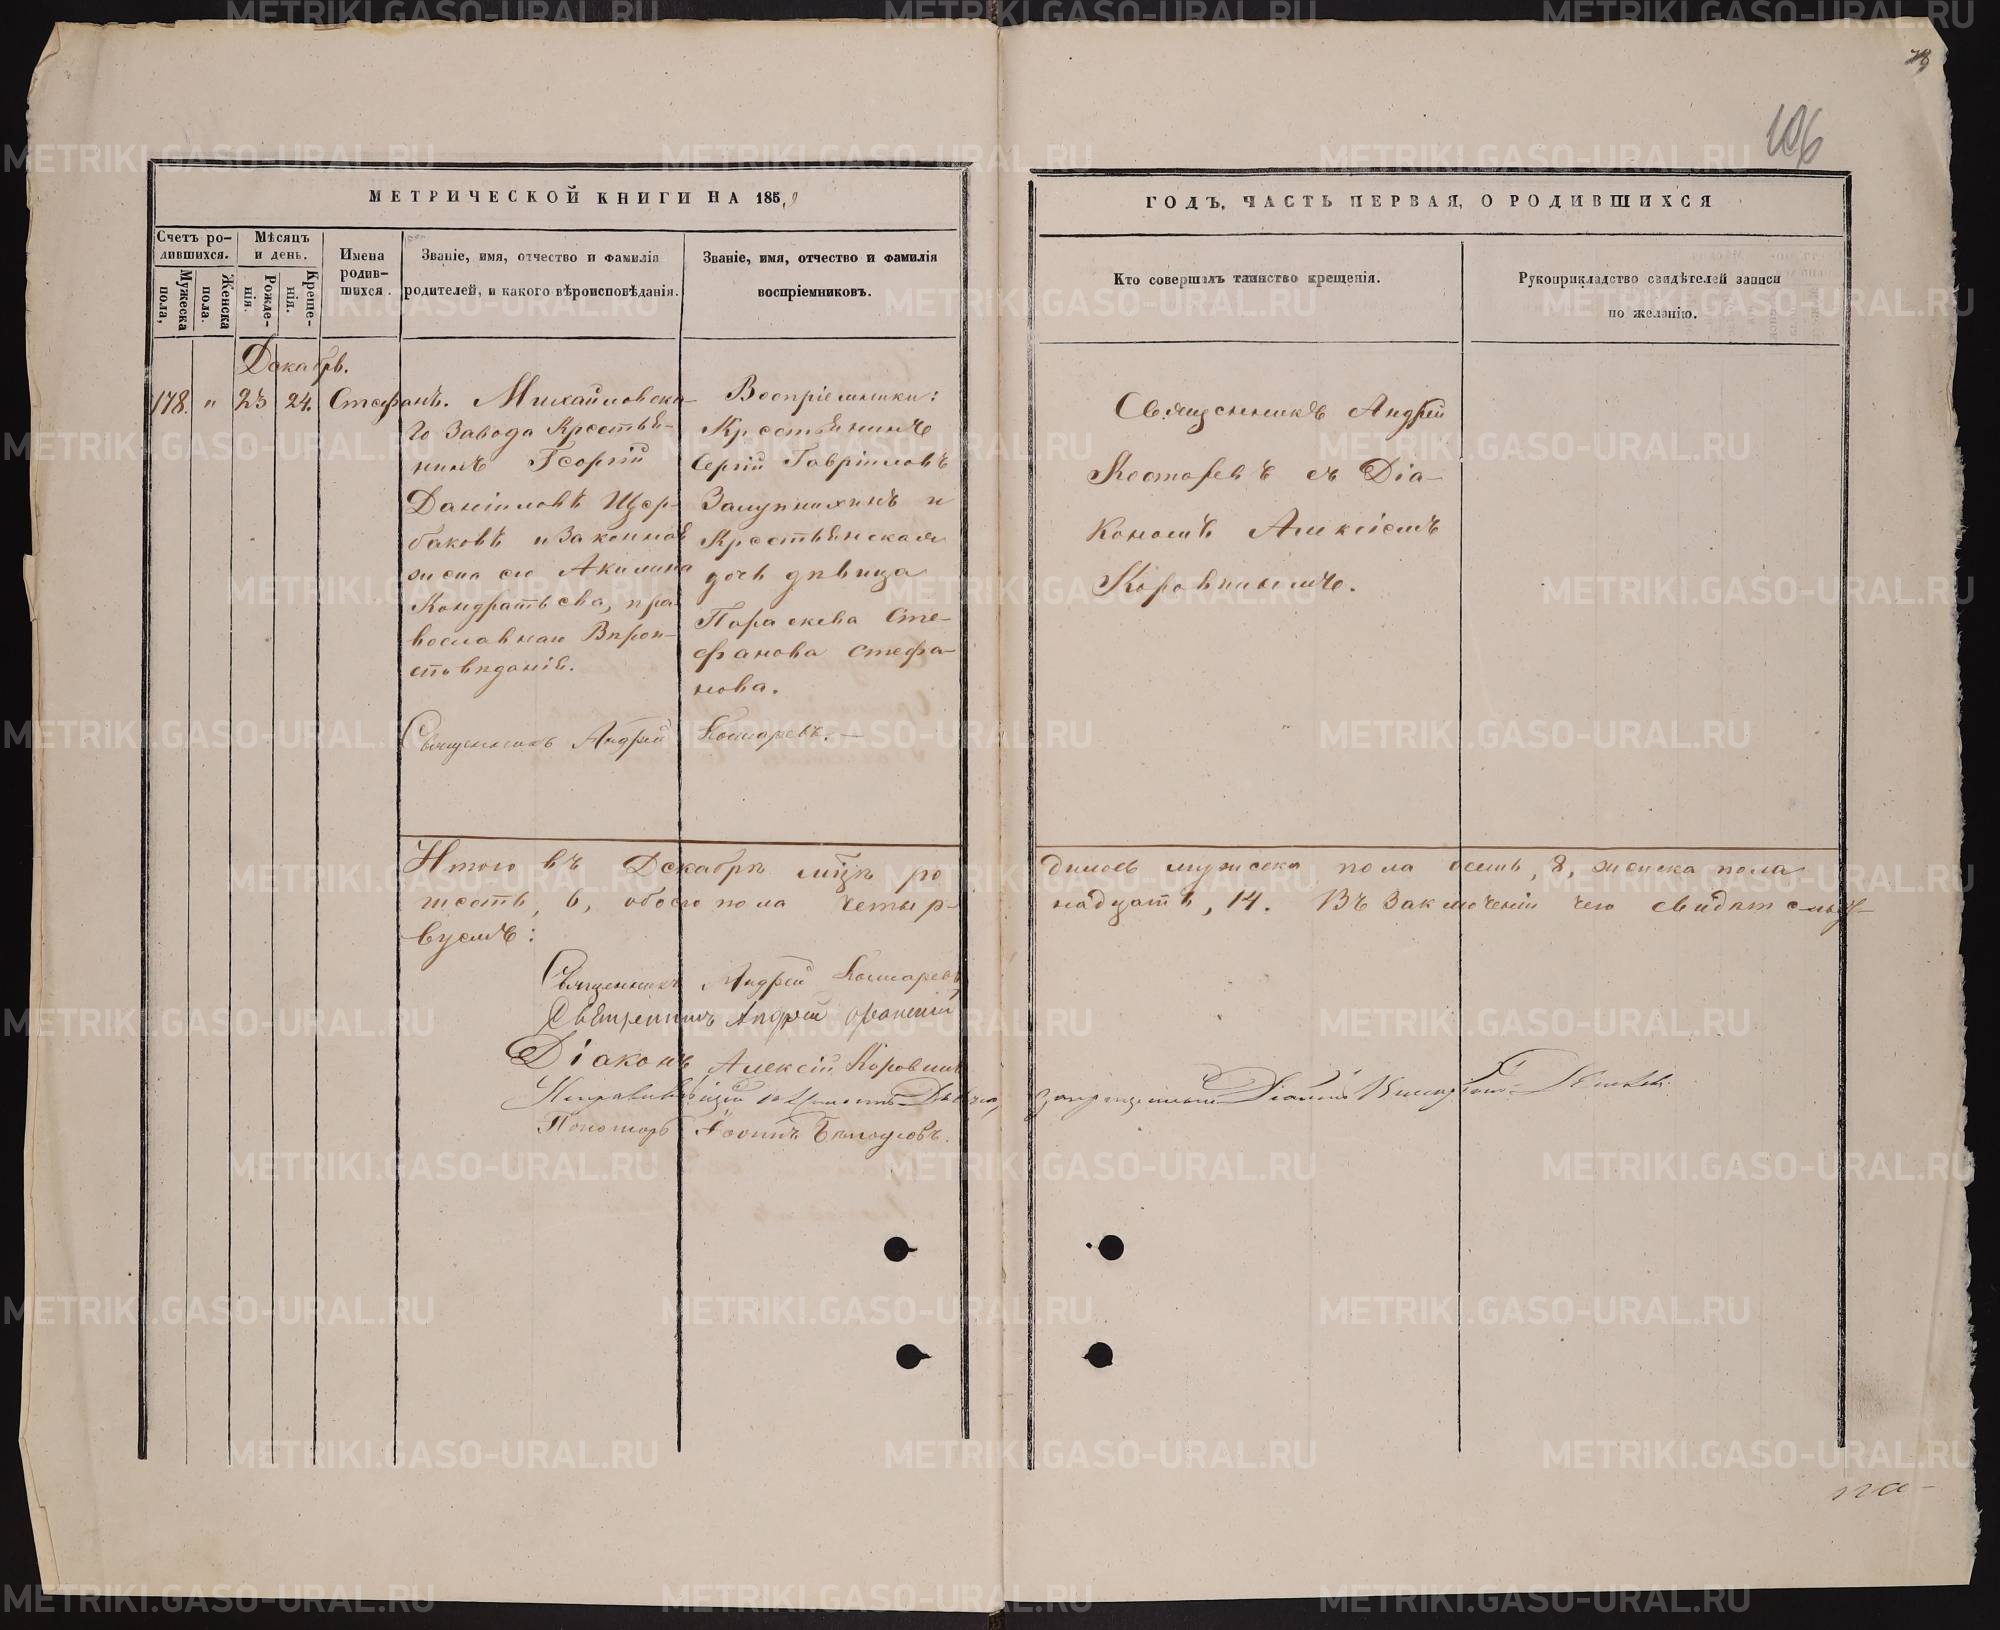 106
МЕТРИЧЕСКОЙ КНИГИ НА 1859
ГОДЪ, ЧАСТЬ ПЕРВАЯ, О РОДИВШИХСЯ
Счетъ ро-
дившихся.
Мужеска
пола,
Женска
пола.
Мѣсяцъ
и день.
Рожде-
нія.
Креще-
нія.
Имена
родив-
шихся.
Званіе, имя, отчество и фамилія
родителей, и какого вѣроисповѣданія.
Званіе, имя, отчество и фамилія
воспріемниковъ.
Кто совершалъ таинство крещенія.
Рукоприкладство свидѣтелей записи
по желанію.
Декабрь.
178. " 23 24. Стефанъ.
Михайловска-
го завода Крестья-
нинъ Георгій
Даніиловъ Щер-
баковъ и законная
жена его Акилина
Кондратьева, пра-
вославнаго Вѣрои-
сповѣданія.
Воспріемники:
Крестьянинъ
Сергій Гавріиловъ
Залупихинъ и
Крестьянская
дочь дѣвица
Параскева Сте-
фанова Стефа-
нова.
Священникъ Андрей
Костаревъ съ Діа-
кономъ Алексіемъ
Коровинымъ.
Священникъ Андрей Костаревъ.—
Итого въ Декабрѣ мцѣ ро
дилось мужска пола осмь, 8, женска пола
шесть, 6, обоего пола четыр-
надцать, 14. Въ заключеніи чего свидѣтельст-
вуемъ:
Священникъ Андрей Костаревъ
Священникъ Андрей
Діаконъ Алексій Коровинъ
Исправляющій должность Дьячка,
запрещенный Діаконъ
Пономарь Іоаннъ Бѣлоусовъ.
METRIKI.GASO-URAL.RU